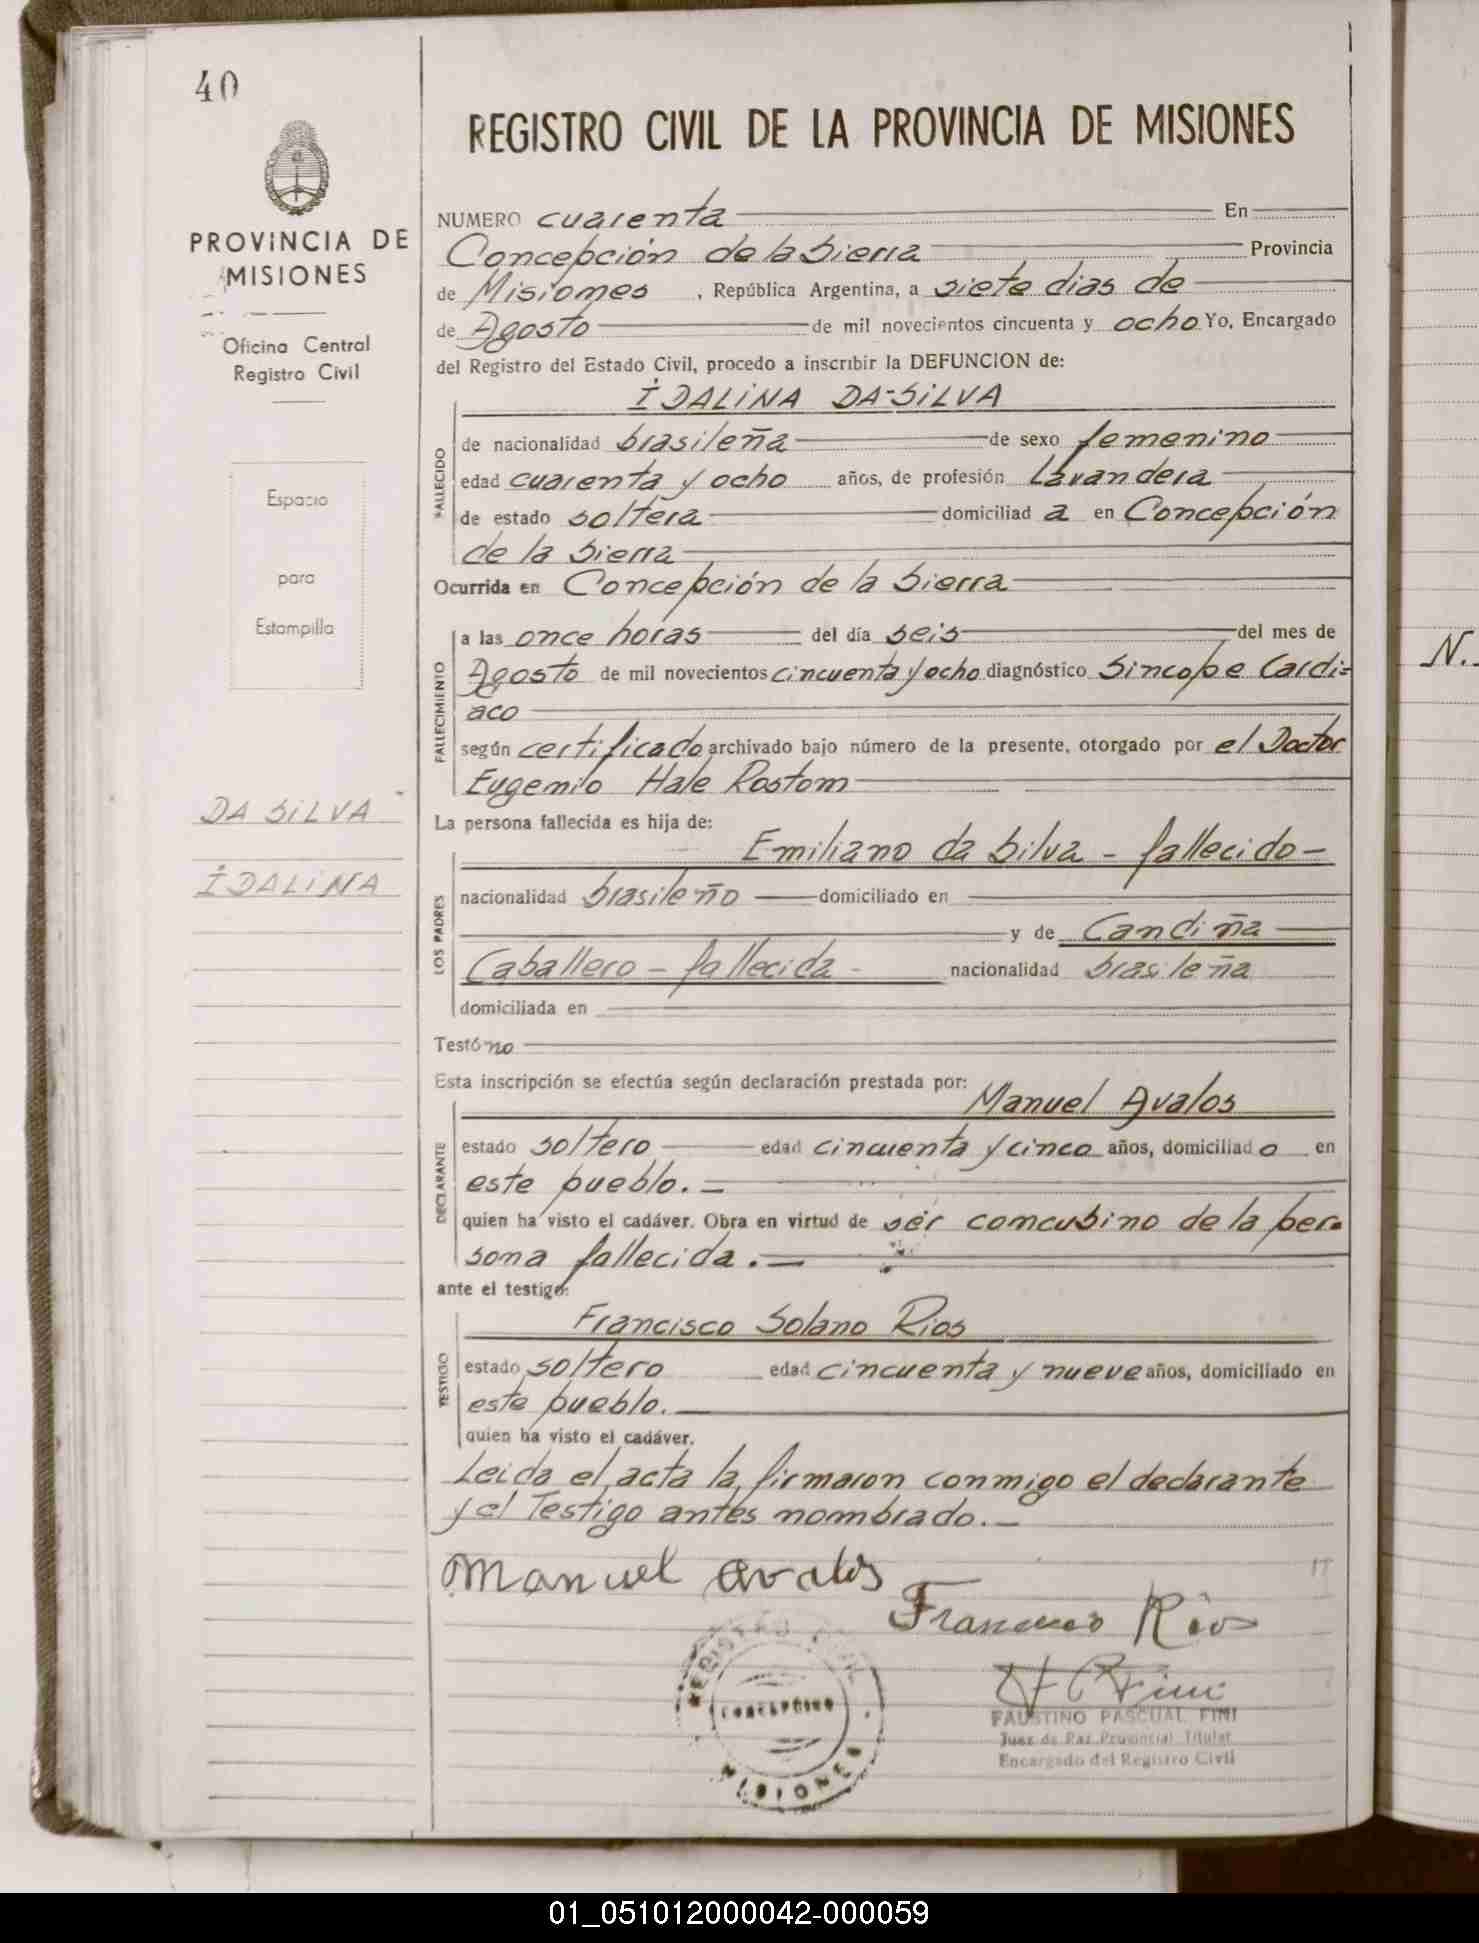 40
REGISTRO CIVIL DE LA PROVINCIA DE MISIONES
PROVINCIA DE
MISIONES
Oficina Central
Registro Civil
Espacio
para
Estampilla
DA SILVA
IDALINA
NUMERO cuarenta En
Concepción de la Sierra Provincia
de Misiones , República Argentina, a siete dias de
de Agosto de mil novecientos cincuenta y ocho Yo, Encargado
del Registro del Estado Civil, procedo a inscribir la DEFUNCION de:
IDALINA DA-SILVA
FALLECIDO
de nacionalidad brasileña de sexo femenino
edad cuarenta y ocho años, de profesión Lavandera
de estado soltera domiciliad a en Concepción
de la Sierra
Ocurrida en Concepción de la Sierra
FALLECIMIENTO
a las once horas del día seis del mes de
Agosto de mil novecientos cincuenta y ocho diagnóstico Sincope Cardi=
aco
según certificado archivado bajo número de la presente, otorgado por el Doctor
Eugenio Hale Rostom
La persona fallecida es hija de:
LOS PADRES
Emiliano da Silva - fallecido-
nacionalidad brasileño domiciliado en
y de Candiña
Caballero - fallecida - nacionalidad brasileña
domiciliada en
Testó no
Esta inscripción se efectúa según declaración prestada por:
DECLARANTE
Manuel Avalos
estado soltero edad cincuenta y cinco años, domiciliad o en
este pueblo. -
quien ha visto el cadáver. Obra en virtud de ser comcubino de la per=
sona fallecida. -
ante el testigo:
TESTIGO
Francisco Solano Rios
estado soltero edad cincuenta y nueve años, domiciliado en
este pueblo.
quien ha visto el cadáver.
Leida el acta la firmaron conmigo el declarante
y el Testigo antes nombrado. -
Manuel Avalos
Francisco Rios
REGISTRO CIVIL
CONCEPCION
MISIONES
FAUSTINO PASCUAL FINI
Juez de Paz Provincial Titular
Encargado del Registro Civil
N.
01_051012000042-000059